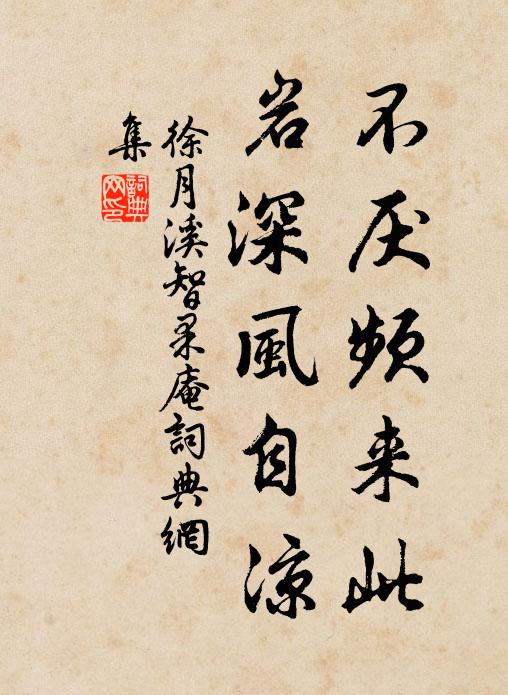 不厌频来此
岩深風自凉
徐月溪智果庵詞典網
集
詞典网印